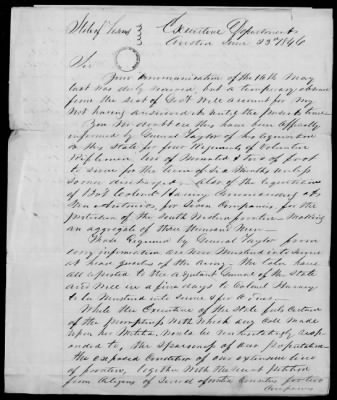 State of Texas
Executive Department
Austin June 23d 1846
Sir
Your communication of the 16th May
last was duly received, but a temporary absence
from the Seat of Govt will account for my
not having answered it until the present time
You no doubt ere this have been officially
informed by General Taylor of his requisition
on this State for four Regiments of Volunteer
Riflemen, two of Mounted & two of foot
to serve for the term of six Months unless
sooner discharged, also of the requisition
of Colonel Harney
for Seven Companies, for the
protection of the South Western frontier making
an aggregate of three thousand Men
Those required by General Taylor from
my information are now Mustered into service
at Head quarters of the Army. The latter have
all reported to the Adjutant General of the State
and will in a few days to Colonel Harney
to be Mustered into service
While the Executive of the State feels
of the promptness with which any Call made
upon her Militia, would be
to, the sparseness of our population
the exposed Condition of our extensive line
of frontier, together with the recent petition
from Citizens of Several frontier Counties for two
Companies